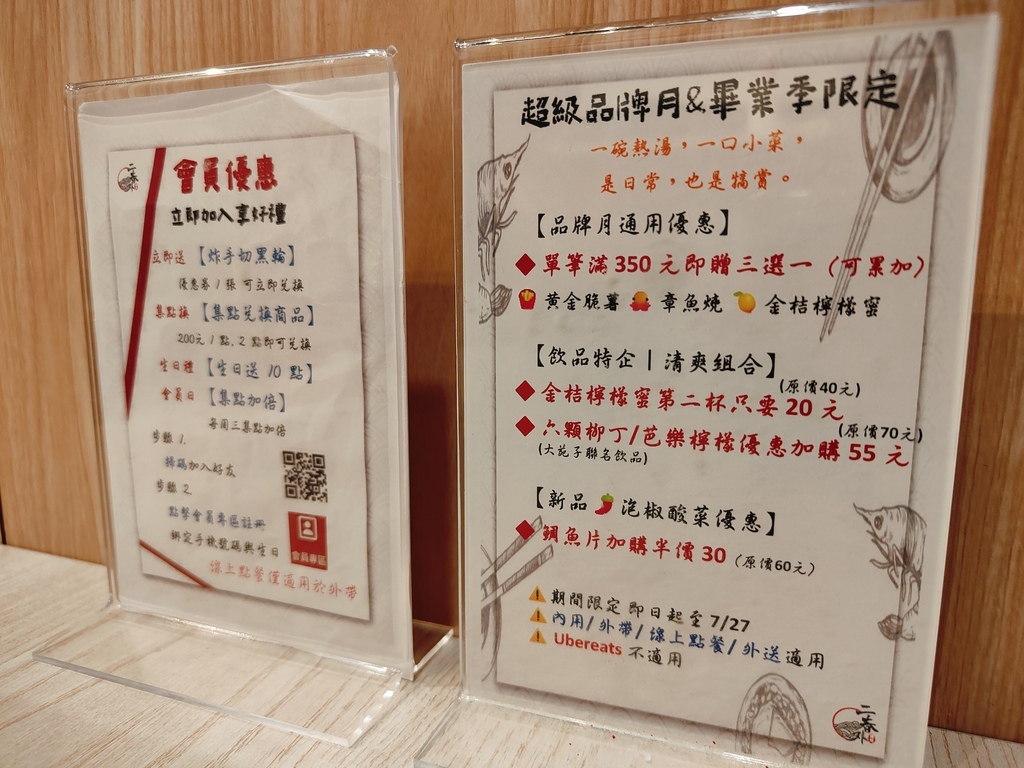 二春外
會員優惠
立即加入享好禮
立即送【炸手切黑輪】
優惠券1張 可立即兌換
集點換【集點兌換商品】
200元1點、2點即可兌換
生日禮【生日送10點】
會員日【集點加倍】
每周三集點加倍
步驟1.
掃碼加入好友
步驟2.
點擊會員專區註冊
綁定手機號碼與生日
會員專區
線上點餐僅適用於外帶
超級品牌月&畢業季限定
一碗熱湯，一口小菜，
是日常，也是犒賞。
【品牌月通用優惠】
單筆滿350元即贈三選一（可累加）
黃金脆薯 章魚燒 金桔檸檬蜜
【飲品特企|清爽組合】
(原價40元)
金桔檸檬蜜第二杯只要20元
(原價70元)
六顆柳丁/芭樂檸檬優惠加購55元
(大苑子聯名飲品)
【新品 泡椒酸菜優惠】
鯛魚片加購半價30 (原價60元)
期間限定即日起至7/27
內用/外帶/線上點餐/外送適用
Ubereats 不適用
二春外